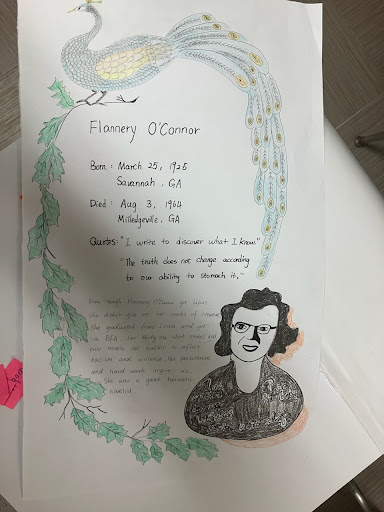 Flannery O'Connor
Born: March 25, 1925
Savannah, GA
Died: Aug 3, 1964
Milledgeville, GA
Quotes: "I write to discover what I know"
"The truth does not change according
to our ability to stomach it."
Even though Flannery O'Connor got lupus
she didn't give up her works of
She graduated from Iowa and got
MFA. Her thirty one short stories and
two novels
racism and violence. Her persistence
and hard work inspire us.
She was a great
novelist